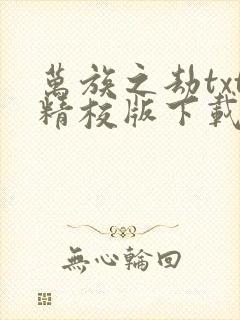 萬族之劫txt
精校版下載
無心輪回